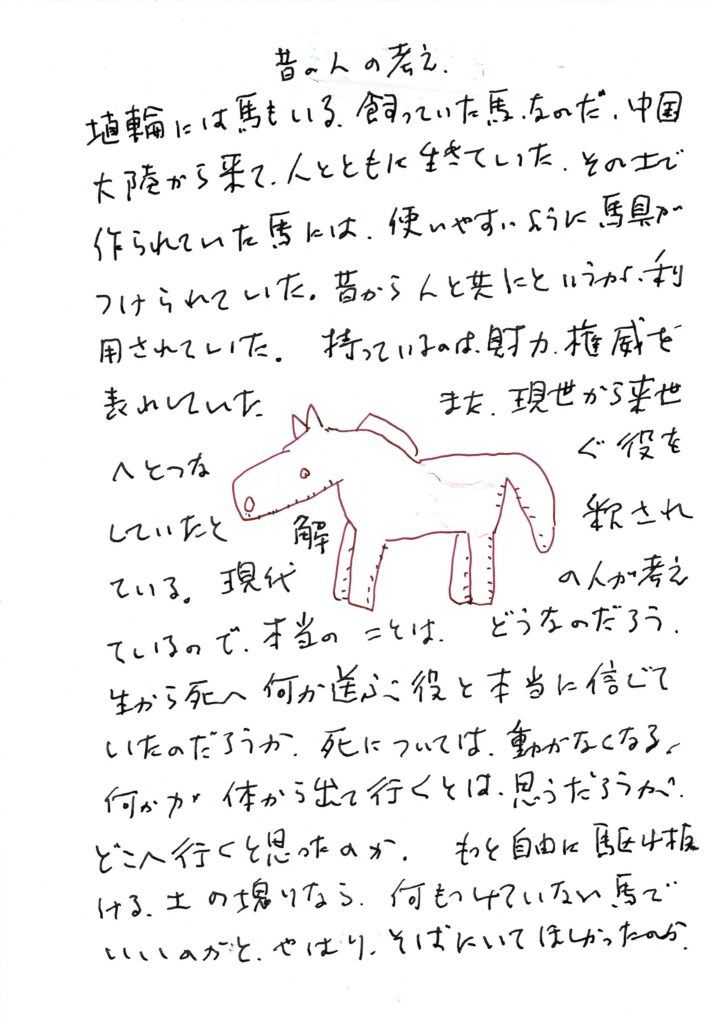 昔の人の考え.
埴輪には馬もいる、飼っていた馬、なのだ、中国
大陸から来て、人とともに生きていた、その土で
作られていた馬には、使いやすいように馬具が
つけられていた。昔から人と共にというが、利
用されていた。 持っているのは、財力、権威を
表わしていた また、現世から来世
へとつな ぐ役を
していたと 解 釈され
ている。現代 の人が考え
ているので、本当の ことは、 どうなのだろう、
生から死へ 何か運ぶ役と本当に信じて
いたのだろうか、死については、動かなくなる、
何かが 体から出て行くとは、思うだろうが、
どこへ行くと思ったのか、 もっと自由に駆け抜
ける、土の塊りなら、何もつけていない馬で
いいのがと、やはり、そばにいてほしかったのか、